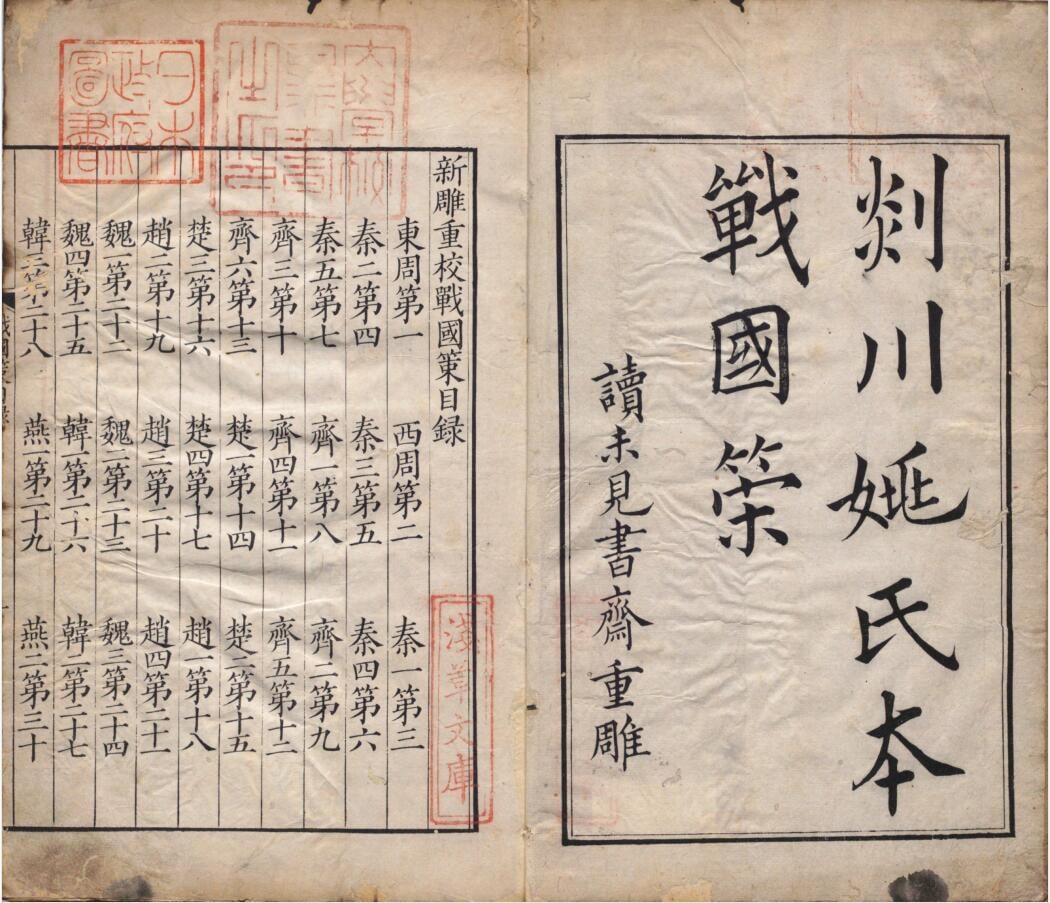 剡川姚氏本
戰國策
讀未見書齋重雕
新雕重校戰國策目録
東周第一 西周第二 秦一第三
秦二第四 秦三第五 秦四第六
秦五第七 齊一第八 齊二第九
齊三第十 齊四第十一 齊五第十二
齊六第十三 楚一第十四 楚二第十五
楚三第十六 楚四第十七 趙一第十八
趙二第十九 趙三第二十 趙四第二十一
魏一第二十二 魏二第二十三 魏三第二十四
魏四第二十五 韓一第二十六 韓二第二十七
韓三第二十八 燕一第二十九 燕二第三十
大學校
圖書
之印
日本
政府
圖書
淺草文庫